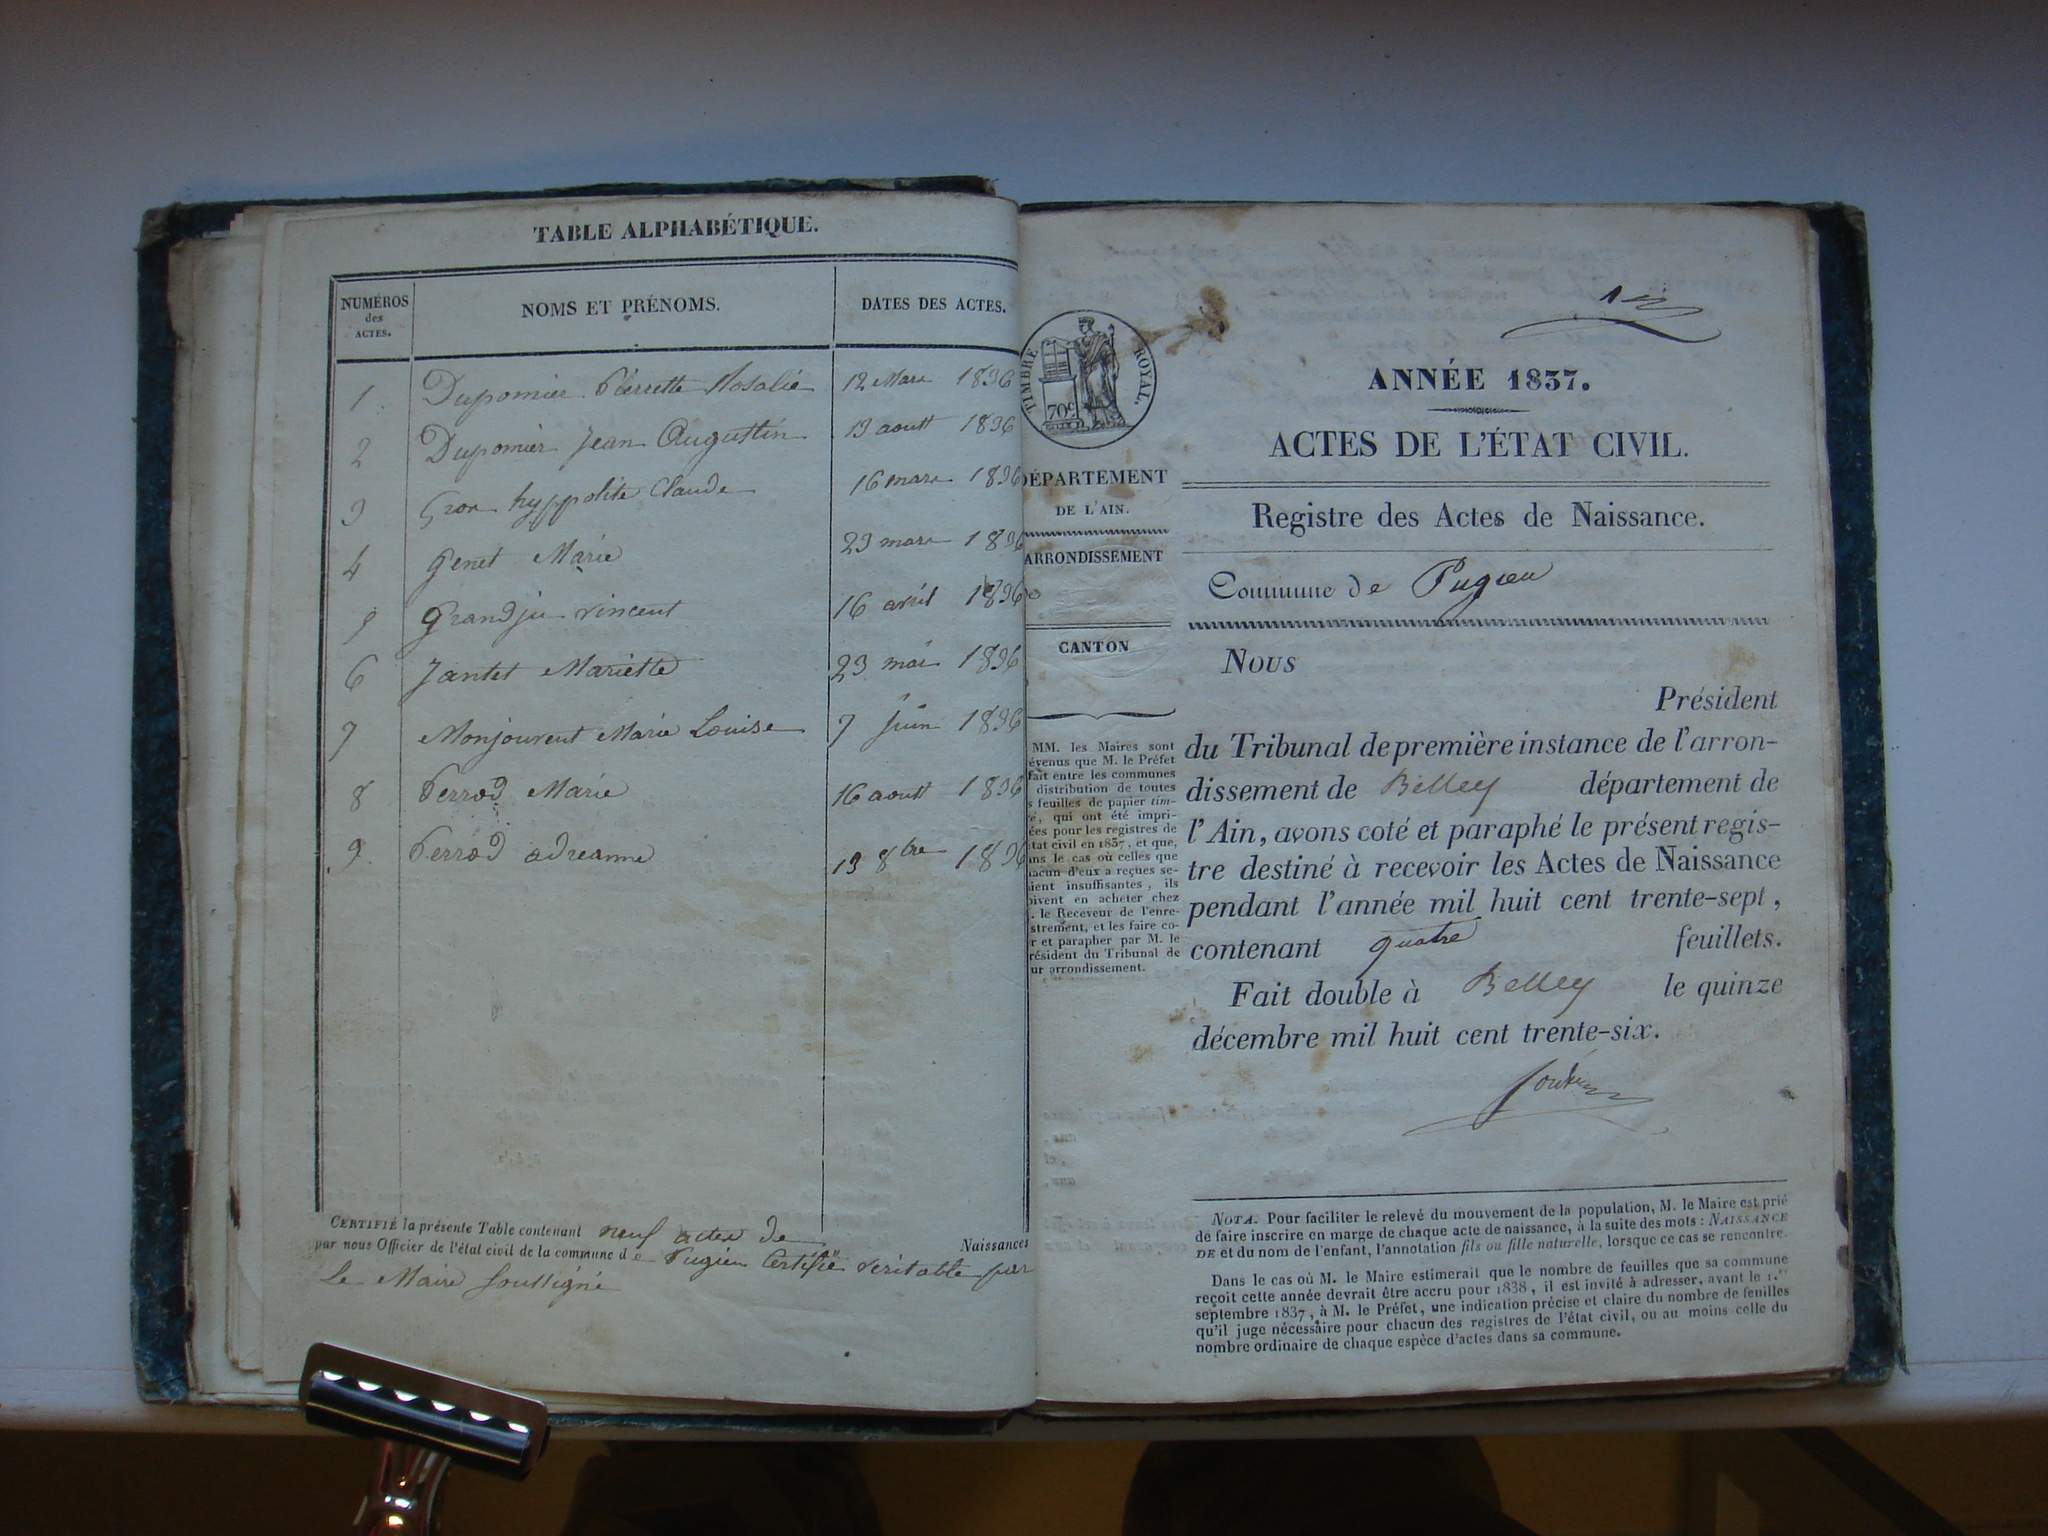 TABLE ALPHABÉTIQUE.
NUMÉROS
des
ACTES.
NOMS ET PRÉNOMS.
DATES DES ACTES.
1 Dupomier Pierrette Rosalie 12 Mars 1836
2 Dupomier Jean Augustin 13 aoutt 1836
3 hyppolite Claude 16 mars 1836
4 Genet Marie 23 mars 1836
5 Grandju vincent 16 avril 1836
6 Jantet Mariette 23 mai 1836
7 Monjouvent Marie Louise 7 Juin 1836
8 Perrod Marie 16 aoutt 1836
9 Perrod adreanne 13 8bre 1836
CERTIFIÉ la présente Table contenant neuf actes de Naissances
par nous Officier de l'état civil de la commune de Pugieu Certifié véritable par
Le Maire soussigné
TIMBRE ROYAL.
70c
DÉPARTEMENT
DE L'AIN.
ARRONDISSEMENT
CANTON
MM. les Maires sont
évenus que M. le Préfet
fait entre les communes
distribution de toutes
s feuilles de papier tim-
é, qui ont été impri-
ées pour les registres de
tat civil en 1837, et que,
ans le cas où celles que
hacun d'eux a reçues se-
aient insuffisantes, ils
oivent en acheter chez
. le Receveur de l'enre-
strement, et les faire co-
r et parapher par M. le
résident du Tribunal de
ur arrondissement.
ANNÉE 1837.
ACTES DE L'ÉTAT CIVIL.
Registre des Actes de Naissance.
Commune de Pugieu
NOUS
Président
du Tribunal de première instance de l'arron-
dissement de Belley département de
l'Ain, avons coté et paraphé le présent regis-
tre destiné à recevoir les Actes de Naissance
pendant l'année mil huit cent trente-sept,
contenant quatre feuillets.
Fait double à Belley le quinze
décembre mil huit cent trente-six.
NOTA. Pour faciliter le relevé du mouvement de la population, M. le Maire est prié
de faire inscrire en marge de chaque acte de naissance, à la suite des mots : NAISSANCE
DE et du nom de l'enfant, l'annotation fils ou fille naturelle, lorsque ce cas se rencontre.
Dans le cas où M. le Maire estimerait que le nombre de feuilles que sa commune
reçoit cette année devrait être accru pour 1838, il est invité à adresser, avant le 1.er
septembre 1837, à M. le Préfet, une indication précise et claire du nombre de feuilles
qu'il juge nécessaire pour chacun des registres de l'état civil, ou au moins celle du
nombre ordinaire de chaque espèce d'actes dans sa commune.